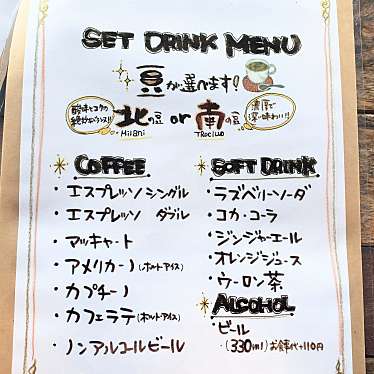 SET DRINK MENU
豆が選べます!
酸味とコクの
絶妙なバランス!!
北の豆 or 南の豆
濃厚で
深い味わい!!
Milani
COFFEE
・エスプレッソ シングル
・エスプレッソ ダブル
・マッキャート
・アメリカーノ(ホットorアイス)
・カプチーノ
・カフェラテ(ホットorアイス)
・ノンアルコールビール
SOFT DRINK
・ラズベリーソーダ
・コカ・コーラ
・ジンジャーエール
・オレンジジュース
・ウーロン茶
ALCOHOL
・ビール
(330ml) お食事代+110円